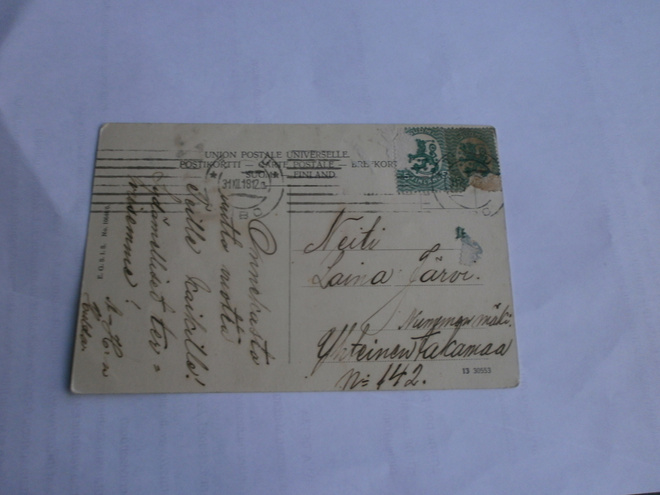 UNION POSTALE UNIVERSELLE.
POSTIKORTTI – CARTE POSTALE – BREVKORT
SUOMI FINLAND
31.XII.18.12
Onnekasta
uutta vuotta
Teille kaikille!
Sydämelliset ter-
veisemme!
Neiti
Laina Järvi.
Nummenmäki.
Yhteinen Takamaa
No 142.
13 30553